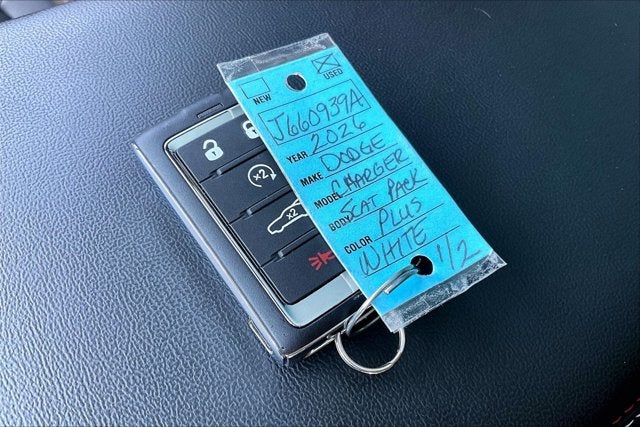 NEW USED
J660939A
YEAR 2026
MAKE DODGE
MODEL CHARGER
BODY SCAT PACK
PLUS
COLOR WHITE
1/2
x2
x2